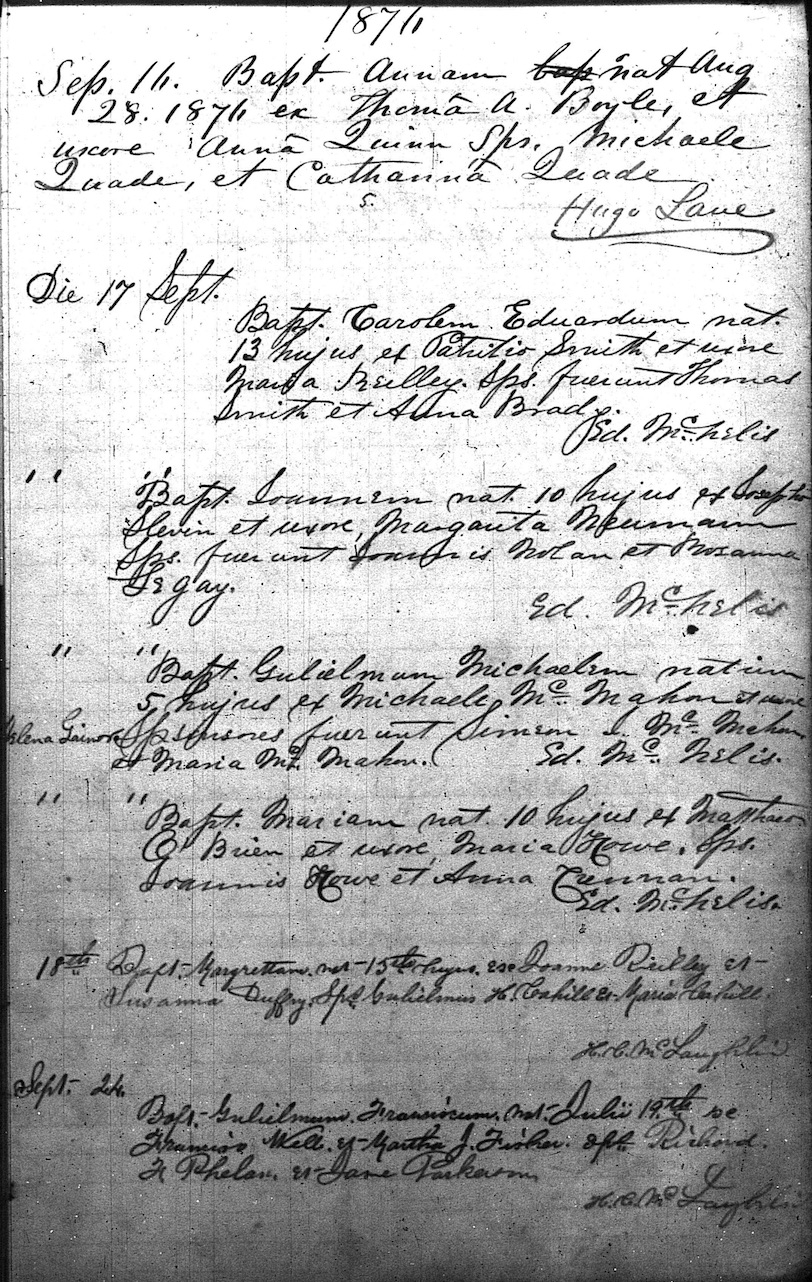 1876
Sep. 16. Bapt. Annam bap nat Aug
28. 1876 ex Thomā A. Boyle, et
uxore Annā Quinn Sps. Michaele
Quade, et Catharinā Quade
Hugo Lane
Die 17 Sept.
Bapt. Carolem Eduardum nat.
13 hujus ex Patritio Smith et uxore
Maria Reilley. Sps. fuerunt Thomas
Smith et Anna Brady.
Ed. McNelis
" " Bapt. Joannem nat. 10 hujus ex Josepho
Slevin et uxore, Margarita Neumann
Sps. fuerunt Joannis Nolan et Rosanna
Segay.
Ed. McNelis
" " Bapt. Gulielmum Michaelem natum
5 hujus ex Michaele Mc Mahon et uxore
Helena Gainore Spsonsores fuerunt Simeon Mc Mahon
et Maria Mc Mahon. Ed. Mc Nelis.
" " Bapt. Mariam nat. 10 hujus ex Matthaeo
O Brien et uxore, Maria Howe. Sps.
Joannis Howe et Anna
Ed. McNelis.
18th Bapt. Margrettam. nat 15th hujus. ex Joanne Rielley et
Susanna Duffy. Sps. Gulielmus H. Cahill et Maria Cahill.
H. C. McLaughlin
Sept. 24.
Bapt. Gulielmum. Franciscum. nat Julii 19th ex
Francisco Well. et Martha J. Fisher. Spt. Richard.
F. Phelan. et Jane Parkerson
H. C. McLaughlin